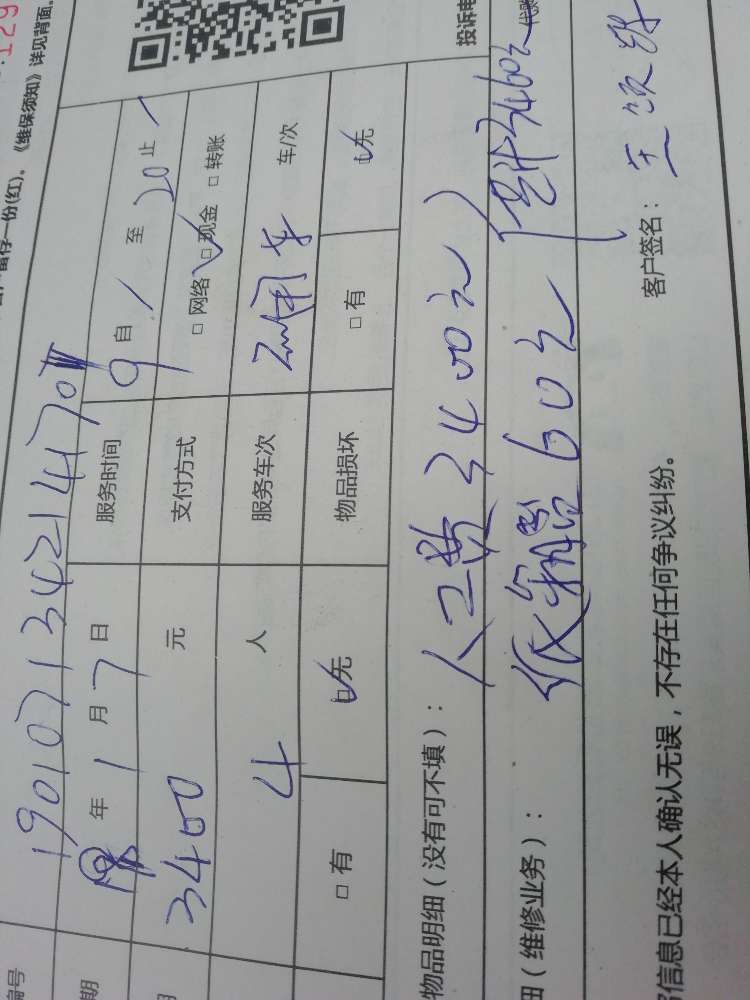 129
户留存一份(红)。《维保须知》详见背面。
投诉电
编号 190107134214170
期 19年1月7日 服务时间 9自 至 20止
3400元 支付方式 □网络 ☑现金 □转账
4人 服务车次 车/次
□有 ☑无 物品损坏 □有 ☑无
物品明细(没有可不填): 人工费3400元
细(维修业务): 纸箱 60元 共计3460元
客户签名:
信息已经本人确认无误,不存在任何争议纠纷。